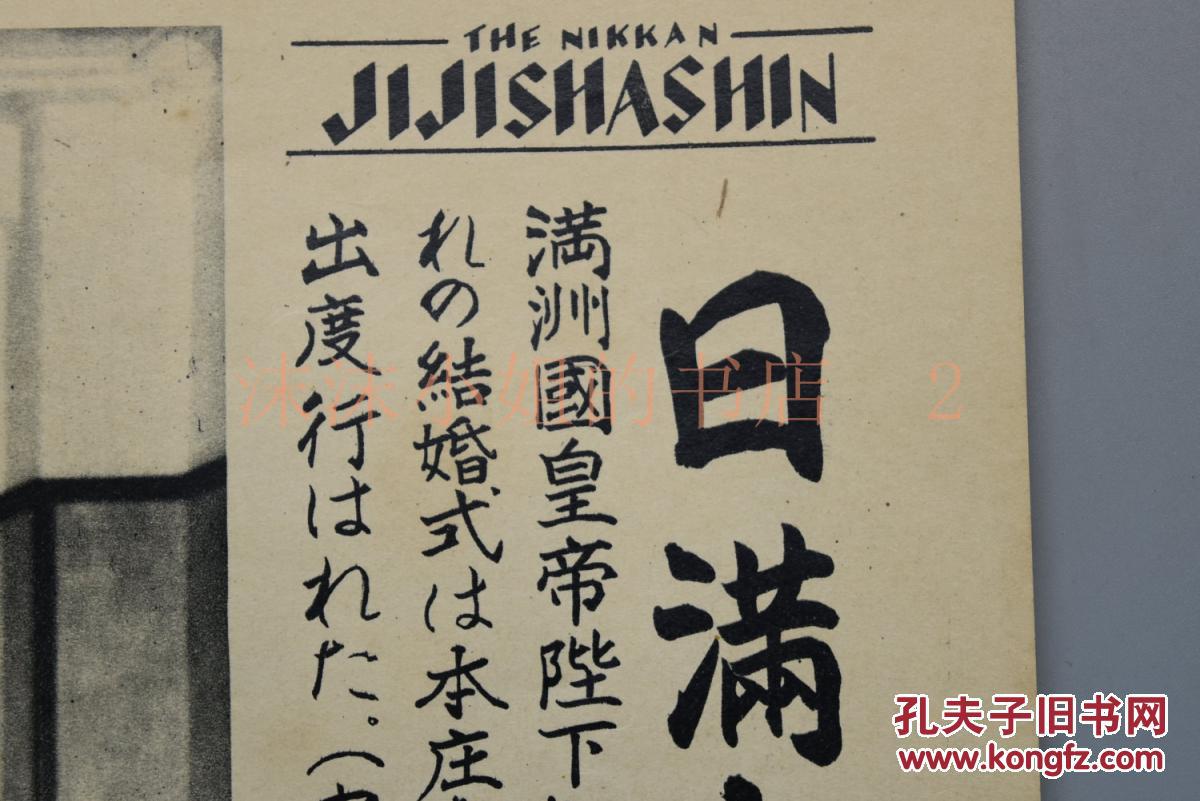 THE NIKKAN
JIJISHASHIN
日満
満洲國皇帝陛下
れの結婚式は本庄
出度行はれた。（
沫沫小姐的书店 2
孔夫子旧书网
www.kongfz.com